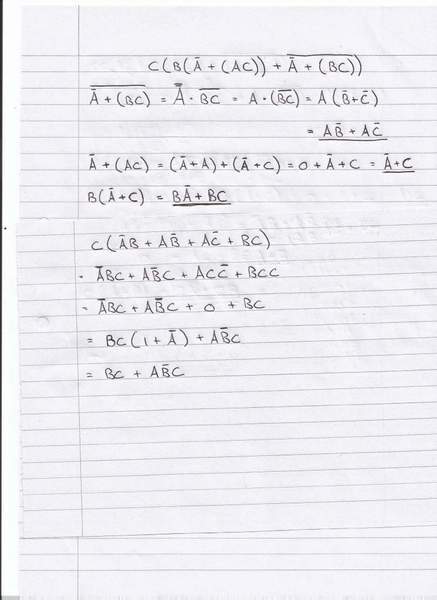 C(B(Ā + (AC)) + \overline{Ā + (BC)})
\overline{Ā + (BC)} = \overline{Ā} · \overline{BC} = A · (\overline{BC}) = A(B̄ + C̄)
= AB̄ + AC̄
Ā + (AC) = (Ā + A) + (Ā + C) = 0 + Ā + C = Ā + C
B(Ā + C) = BĀ + BC
C(ĀB + AB̄ + AC̄ + BC)
= ĀBC + AB̄C + ACC̄ + BCC
= ĀBC + AB̄C + 0 + BC
= BC(1 + Ā) + AB̄C
= BC + AB̄C